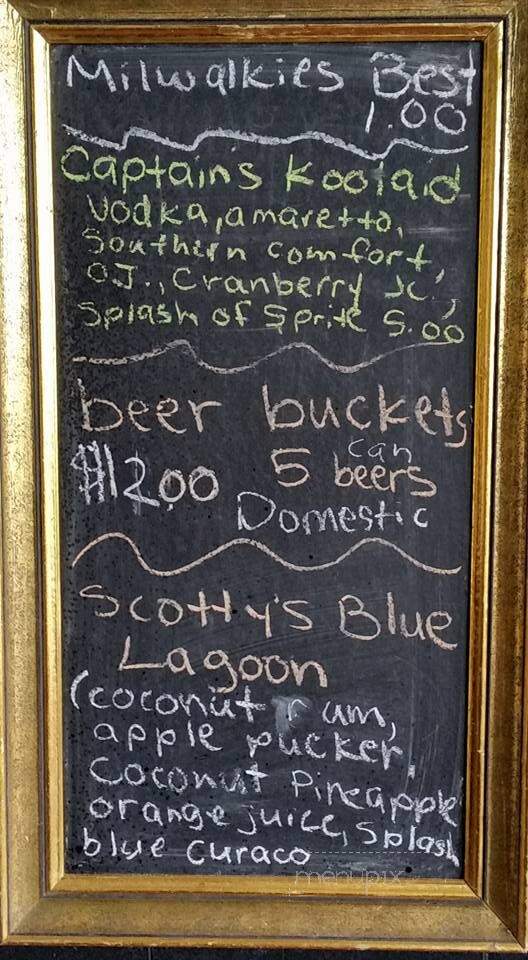 Milwalkies Best
1.00
Captains Koolaid
Vodka, amaretto,
Southern comfort,
OJ., Cranberry Jc.,
Splash of Sprite 5.00
beer buckets
$12.00 5 can beers
Domestic
Scotty's Blue
Lagoon
(coconut rum,
apple pucker,
Coconut Pineapple
orange juice, Splash
blue curaco
menupix